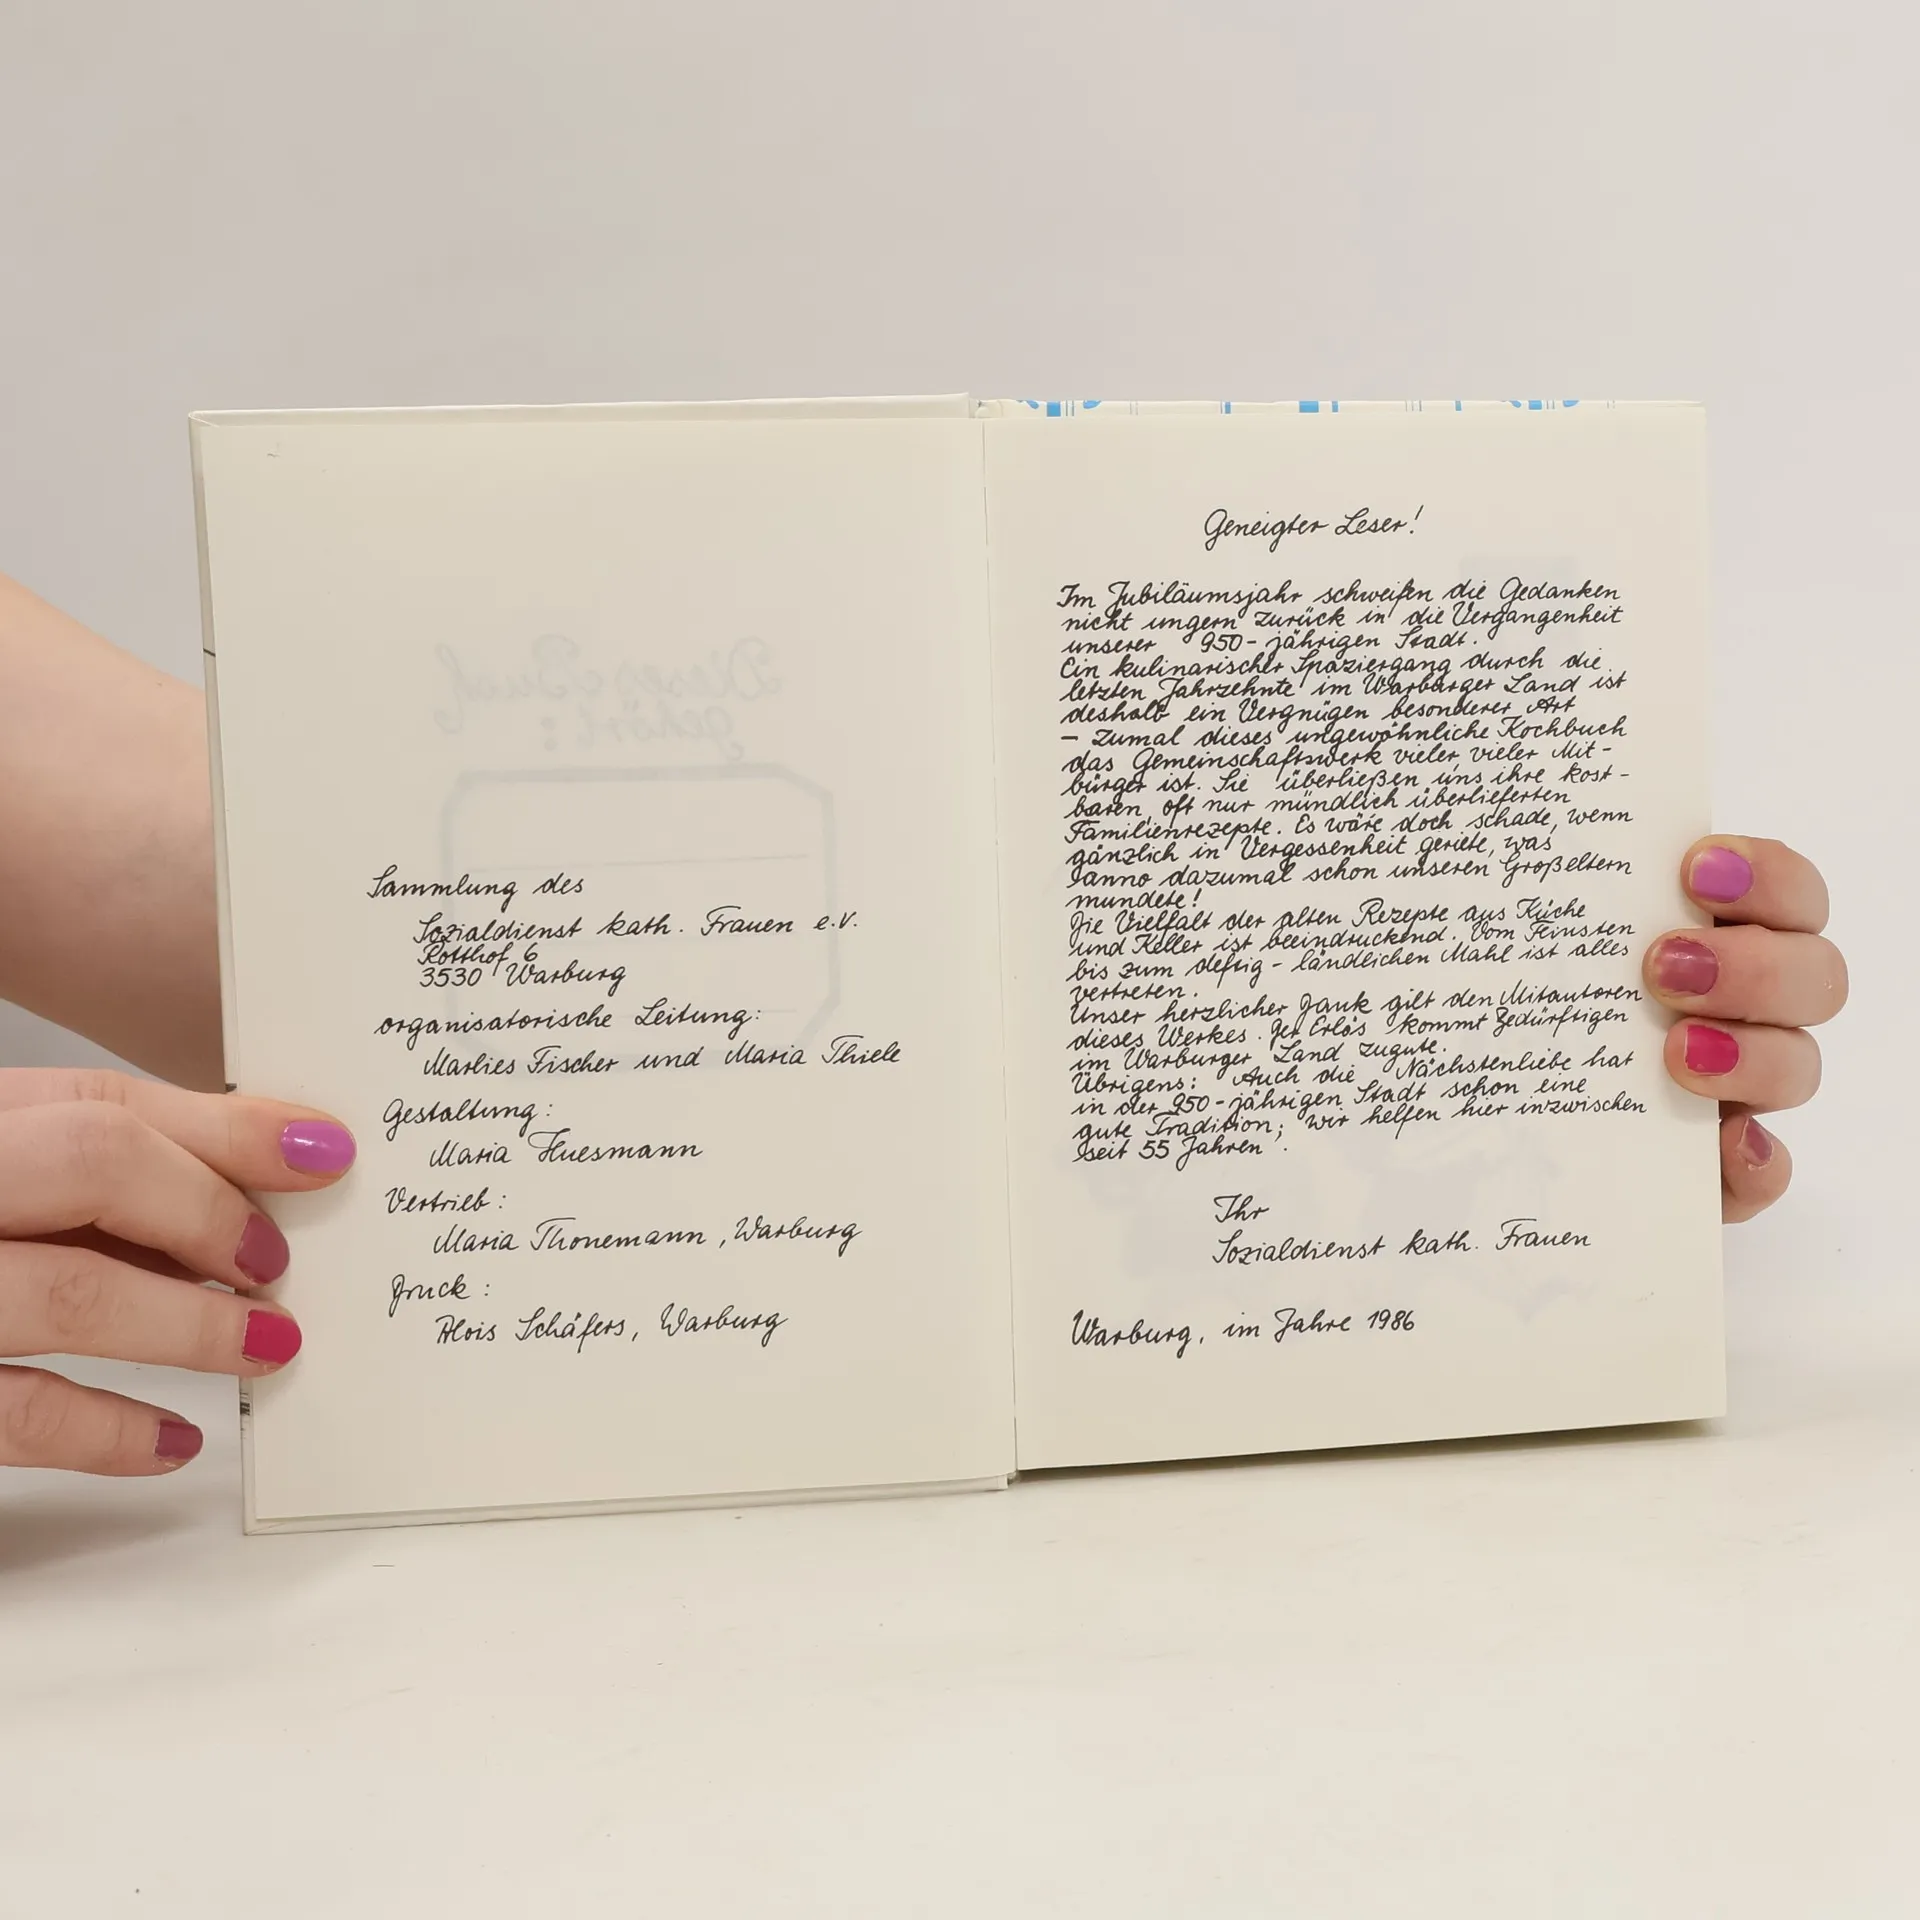 Sammlung des
Sozialdienst kath. Frauen e.V.
Rotthof 6
3530 Warburg
organisatorische Leitung:
Marlies Fischer und Maria Thiele
Gestaltung:
Maria Huesmann
Vertrieb:
Maria Thonemann, Warburg
Druck:
Alois Schäfers, Warburg
Geneigter Leser!
Im Jubiläumsjahr schweifen die Gedanken
nicht ungern zurück in die Vergangenheit
unserer 950-jährigen Stadt.
Ein kulinarischer Spaziergang durch die
letzten Jahrzehnte im Warburger Land ist
deshalb ein Vergnügen besonderer Art
- zumal dieses ungewöhnliche Kochbuch
das Gemeinschaftswerk vieler, vieler Mit-
bürger ist. Sie überließen uns ihre kost-
baren, oft nur mündlich überlieferten
Familienrezepte. Es wäre doch schade, wenn
gänzlich in Vergessenheit geriete, was
anno dazumal schon unseren Großeltern
mundete!
Die Vielfalt der alten Rezepte aus Küche
und Keller ist beeindruckend. Vom Feinsten
bis zum deftig-ländlichen Mahl ist alles
vertreten.
Unser herzlicher Dank gilt den Mitautoren
dieses Werkes. Der Erlös kommt Bedürftigen
im Warburger Land zugute.
Übrigens: Auch die Nächstenliebe hat
in der 950-jährigen Stadt schon eine
gute Tradition; wir helfen hier inzwischen
seit 55 Jahren.
Ihr
Sozialdienst kath. Frauen
Warburg, im Jahre 1986
Dieses Buch
gehört: